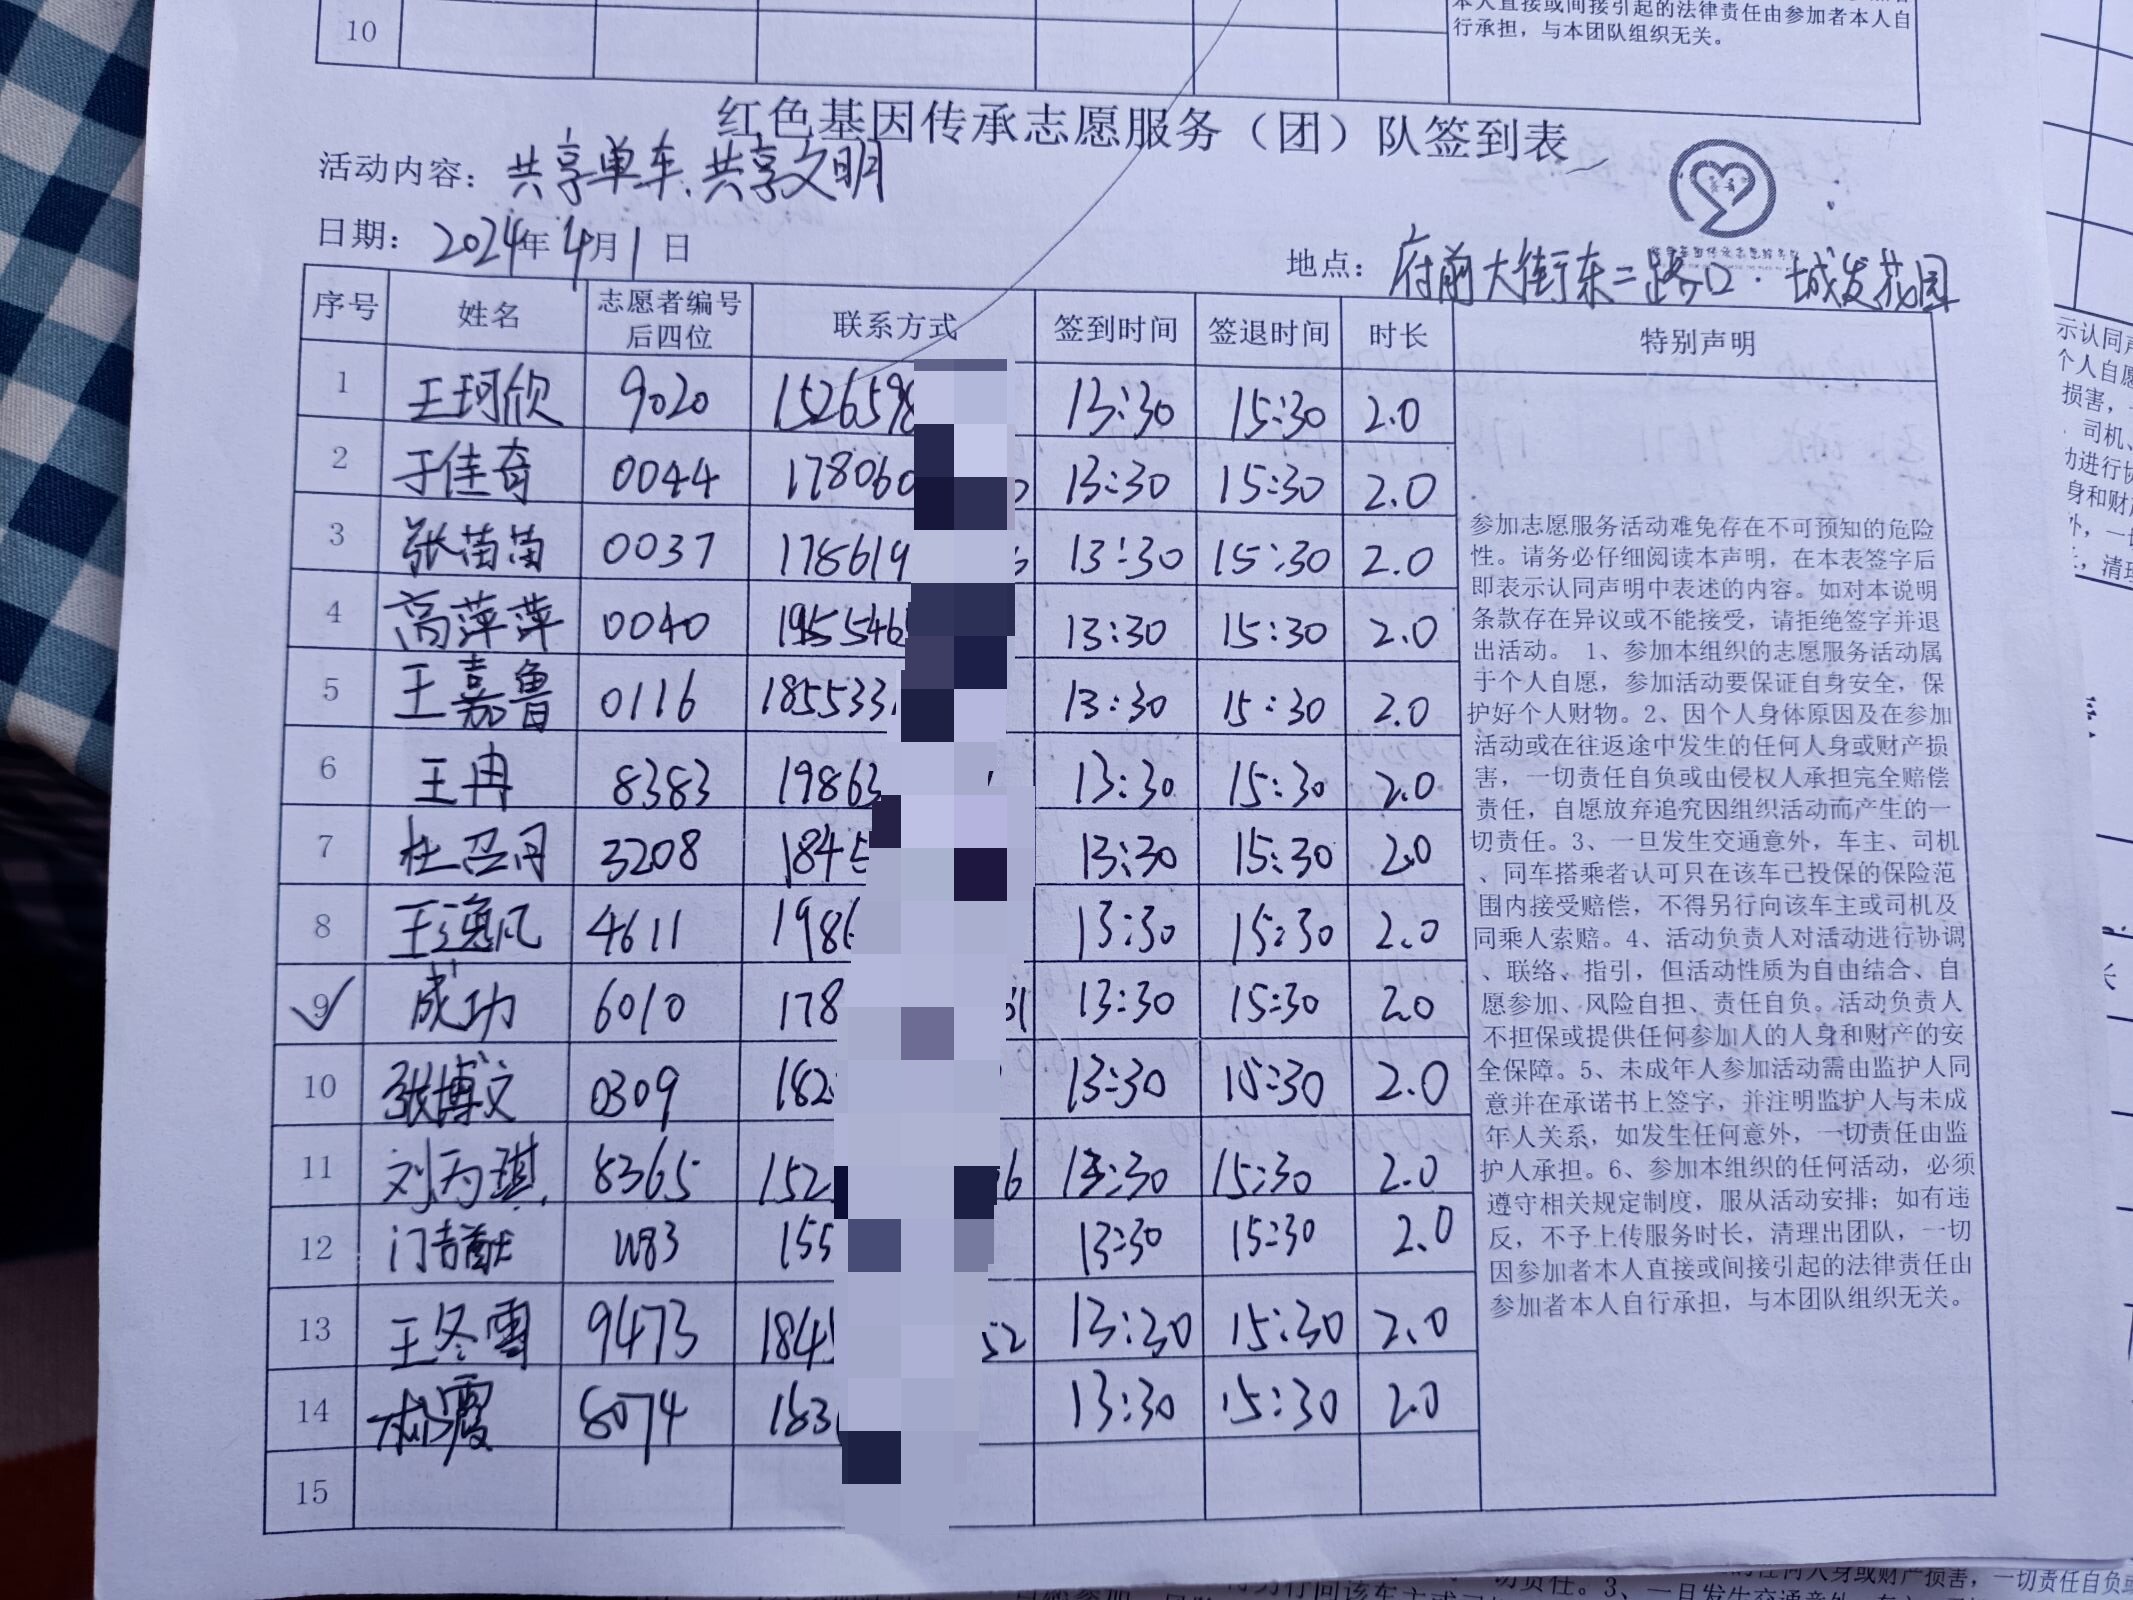 10
本人直接或间接引起的法律责任由参加者本人自
行承担，与本团队组织无关。
红色基因传承志愿服务（团）队签到表
活动内容：共享单车、共享文明
日期：2024年4月1日
地点：府前大街东二路口·城发花园
序号 姓名 志愿者编号后四位 联系方式 签到时间 签退时间 时长 特别声明
1 王珂欣 9020 1526598 13:30 15:30 2.0
2 于佳奇 0044 178060 13:30 15:30 2.0
3 张苗苗 0037 178619 13:30 15:30 2.0
4 高萍萍 0040 195546 13:30 15:30 2.0
5 王嘉鲁 0116 185533 13:30 15:30 2.0
6 王冉 8383 19863 13:30 15:30 2.0
7 杜召丹 3208 1845 13:30 15:30 2.0
8 王逸凡 4611 198 13:30 15:30 2.0
9 成功 6010 178 13:30 15:30 2.0
10 张博文 0309 182 13:30 15:30 2.0
11 刘丙琪 8365 152 13:30 15:30 2.0
12 155 13:30 15:30 2.0
13 王冬雪 9473 184 52 13:30 15:30 2.0
14 8074 183 13:30 15:30 2.0
15
参加志愿服务活动难免存在不可预知的危险
性。请务必仔细阅读本声明，在本表签字后
即表示认同声明中表述的内容。如对本说明
条款存在异议或不能接受，请拒绝签字并退
出活动。 1、参加本组织的志愿服务活动属
于个人自愿，参加活动要保证自身安全，保
护好个人财物。2、因个人身体原因及在参加
活动或在往返途中发生的任何人身或财产损
害，一切责任自负或由侵权人承担完全赔偿
责任，自愿放弃追究因组织活动而产生的一
切责任。3、一旦发生交通意外，车主、司机
、同车搭乘者认可只在该车已投保的保险范
围内接受赔偿，不得另行向该车主或司机及
同乘人索赔。4、活动负责人对活动进行协调
、联络、指引，但活动性质为自由结合、自
愿参加、风险自担、责任自负。活动负责人
不担保或提供任何参加人的人身和财产的安
全保障。5、未成年人参加活动需由监护人同
意并在承诺书上签字，并注明监护人与未成
年人关系，如发生任何意外，一切责任由监
护人承担。6、参加本组织的任何活动，必须
遵守相关规定制度，服从活动安排；如有违
反，不予上传服务时长，清理出团队，一切
因参加者本人直接或间接引起的法律责任由
参加者本人自行承担，与本团队组织无关。